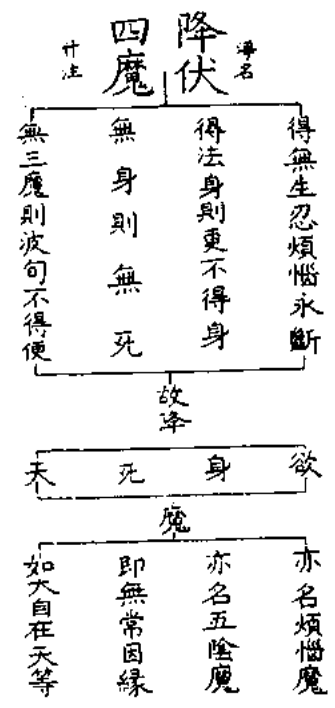 降伏
四魔
淨名
什注
得無生忍煩惱永斷
得法身則更不得身
無身則無死
無三魔則波旬不得便
故降
欲
身
死
天
魔
亦名煩惱魔
亦名五陰魔
即無常因緣
如大自在天等